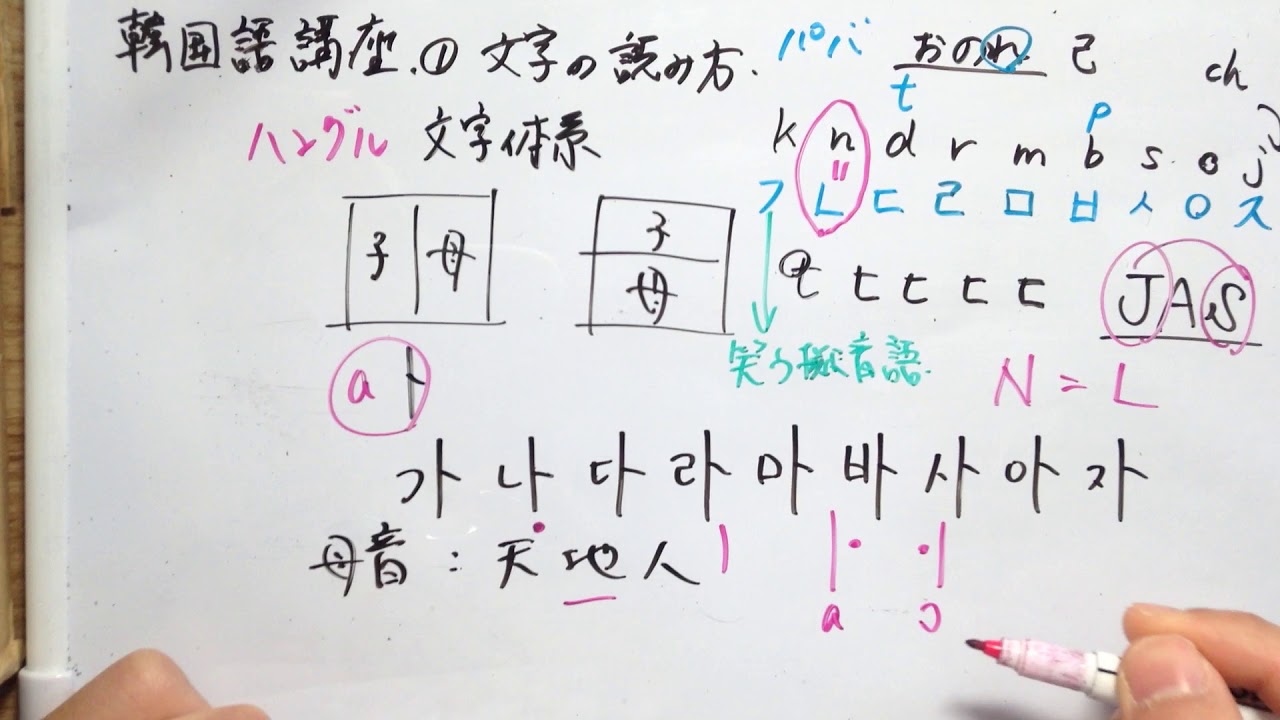 韓国語講座.① 文字の読み方.
パバ おのれ 己 ch
t p
ハングル 文字体系
k n d r m b s o j
〃
ㄱ ㄴ ㄷ ㄹ ㅁ ㅂ ㅅ ㅇ ス
子 母
子
母
ヒ ヒ ヒ ヒ
JAS
笑う擬音語.
a ㅏ
N = L
가 나 다 라 마 바 사 아 자
母音 : 天 地 人 ㅣ ㅣ· ·ㅣ
a ɔ